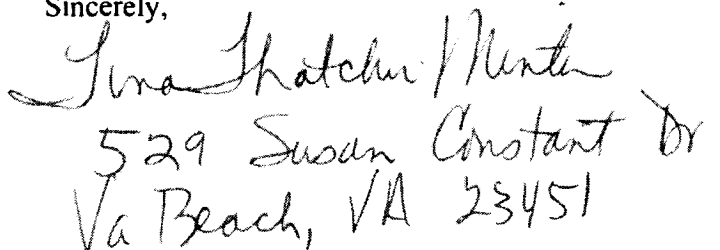 Sincerely,
Tina Thatcher Minter
529 Susan Constant Dr
Va Beach, VA 23451